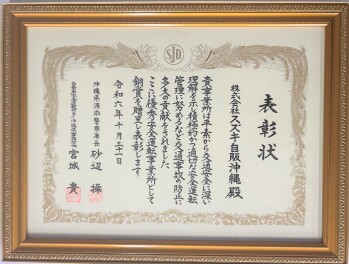 SJD
表彰状
株式会社スズキ自販沖縄 殿
貴事業所は平素から交通安全に深い
理解を示し積極的かつ適切な安全運転
管理に努めるなど交通事故の防止に
多大の貢献をされました
ここに優秀安全運転事業所として
銅賞を贈呈し表彰します
令和六年十月三十一日
沖縄県浦添警察署長 砂辺 操
自動車安全運転センター沖縄県事務所長 宮城 貴